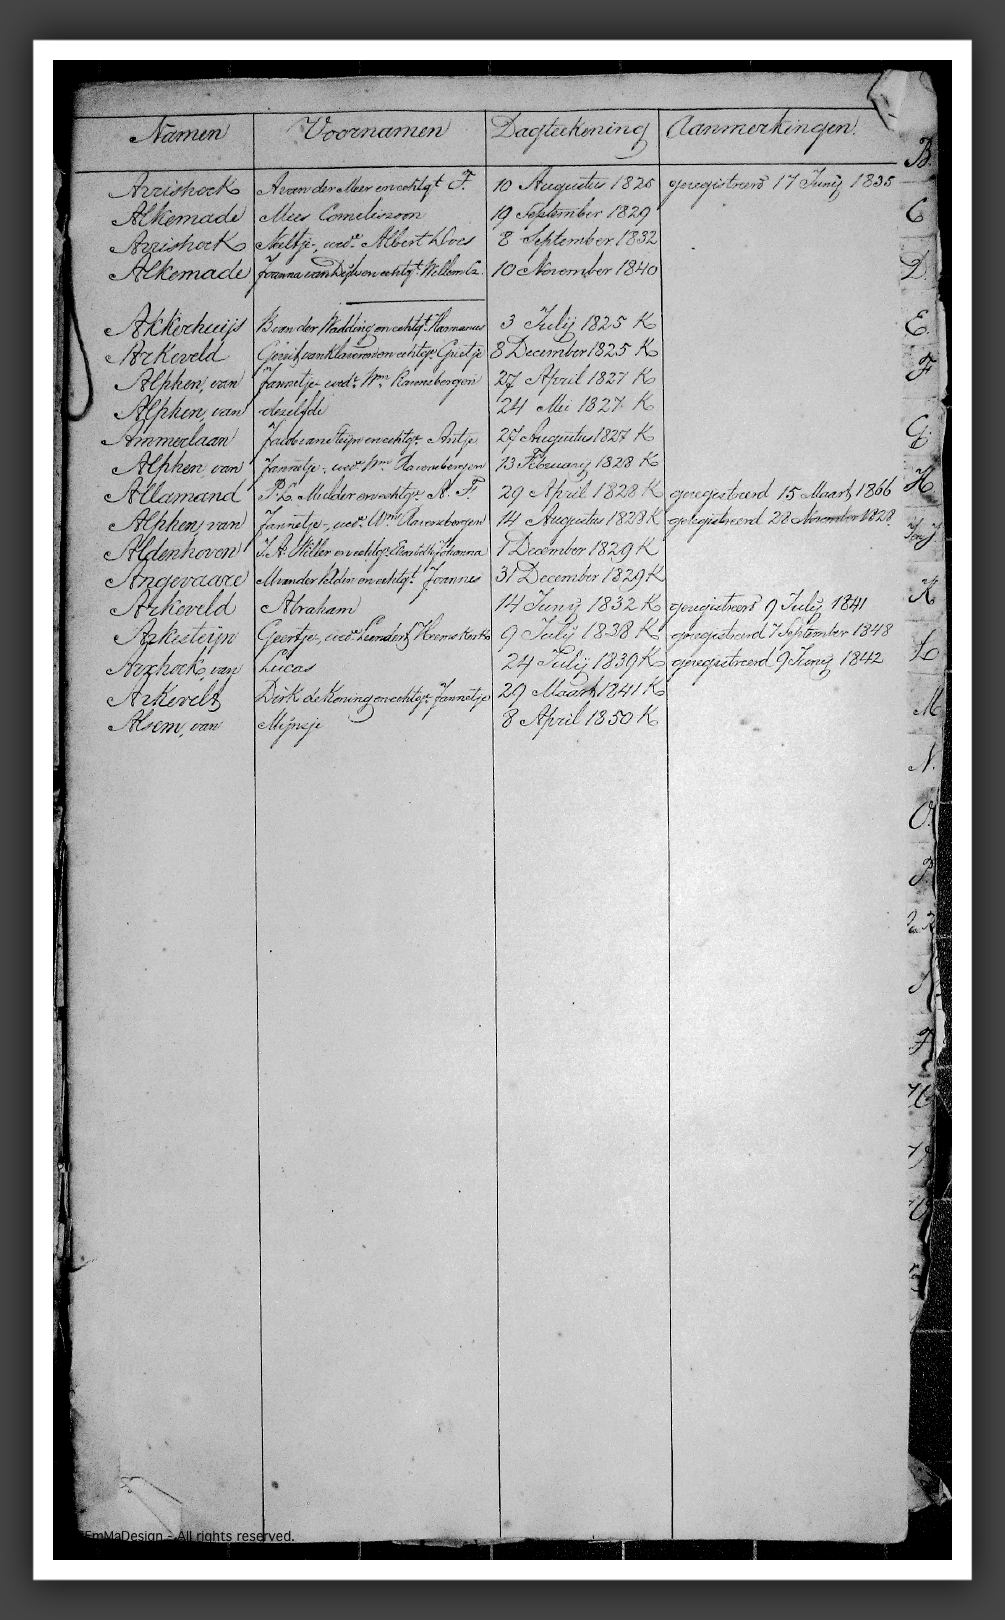 Namen Voornamen Dagteekening Aanmerkingen.
Arrishoek A van der Meer en echtgt F. 10 Augustus 1825 geregistreerd 17 Junij 1835
Alkemade Mees Corneliszoon 19 September 1829
Arrishoek Neeltje, wede Albert Does 8 September 1832
Alkemade Joanna van Dijk en echtgt Willem Cz. 10 November 1840
Akkerhuijs B van der Wadding en echtgt Harmanus 3 Julij 1825 K
Arkeveld Gerrit van Klaveren en echtgt Grietje 8 December 1825 K
Alphen, van Jannetje, wede Wm Ravensbergen 27 April 1827 K
Alphen, van dezelfde 24 Mei 1827 K
Ammerlaan Jacob van Steijn en echtgt Antje 27 Augustus 1827 K
Alphen, van Jannetje, wede Wm Ravensbergen 13 Februarij 1828 K
Allamand P.L. Mulder en echtgt A. F. 29 April 1828 K geregistreerd 15 Maart 1866
Alphen, van Jannetje, wede Wm Ravensbergen 14 Augustus 1828 K geregistreerd 28 November 1828
Aldenhoven J.A. Hiller en echtgt Elisabeth Johanna 1 December 1829 K
Angevaare M van der Velden en echtgt Joannes 31 December 1829 K
Arkeveld Abraham 14 Junij 1832 K geregistreerd 9 Julij 1841
Arkesteijn Geertje, wede Leendert Heemskerk 9 Julij 1838 K geregistreerd 7 September 1848
Arxhoek, van Lucas 24 Julij 1839 K geregistreerd 9 Junij 1842
Arkevelt Dirk de Koning en echtgt Jannetje 29 Maart 1841 K
Alsem, van Mijnsje 8 April 1850 K
B.
C
D
E
F
G
H
K
L
M
N.
O.
P.
T
EmMaDesign - All rights reserved.